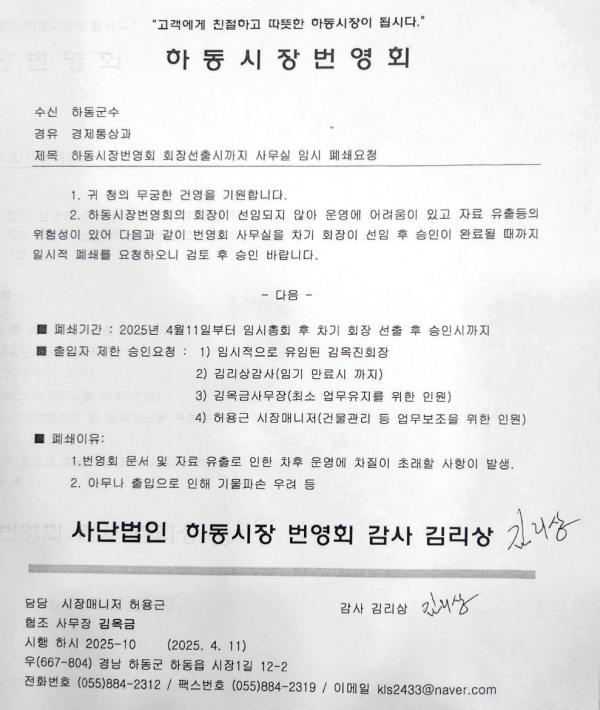 "고객에게 친절하고 따뜻한 하동시장이 됩시다."
하동시장번영회
수신 하동군수
경유 경제통상과
제목 하동시장번영회 회장선출시까지 사무실 임시 폐쇄요청
1. 귀 청의 무궁한 건영을 기원합니다.
2. 하동시장번영회의 회장이 선임되지 않아 운영에 어려움이 있고 자료 유출등의
위험성이 있어 다음과 같이 번영회 사무실을 차기 회장이 선임 후 승인이 완료될 때까지
일시적 폐쇄를 요청하오니 검토 후 승인 바랍니다.
- 다음 -
■ 폐쇄기간 : 2025년 4월11일부터 임시총회 후 차기 회장 선출 후 승인시까지
■ 출입자 제한 승인요청 : 1) 임시적으로 유임된 김옥진회장
2) 김리상감사(임기 만료시 까지)
3) 김옥금사무장(최소 업무유지를 위한 인원)
4) 허용근 시장매니저(건물관리 등 업무보조을 위한 인원)
■ 폐쇄이유:
1.번영회 문서 및 자료 유출로 인한 차후 운영에 차질이 초래할 사항이 발생.
2. 아무나 출입으로 인해 기물파손 우려 등
사단법인 하동시장 번영회 감사 김리상 김리상
담당 시장매니저 허용근 감사 김리상 김리상
협조 사무장 김옥금
시행 하시 2025-10 (2025. 4. 11)
우(667-804) 경남 하동군 하동읍 시장1길 12-2
전화번호 (055)884-2312 / 팩스번호 (055)884-2319 / 이메일 kls2433@naver.com